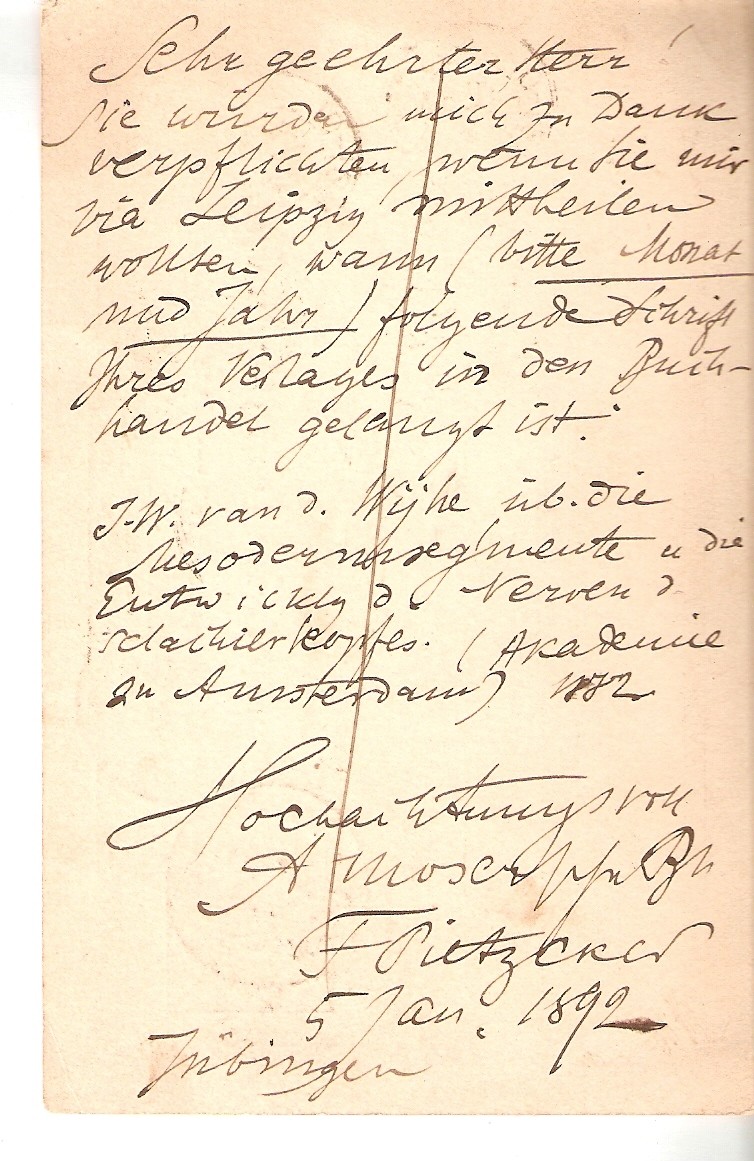 Sehr geehrter Herr!
Sie würden mich zu Dank
verpflichten, wenn Sie mir
via Leipzig mittheilen
wollten, wann (bitte Monat
und Jahr) folgende Schrift
Ihres Verlages in den Buch-
handel gelangt ist:
J. W. van d. Wijhe üb. die
Mesodermsegmente u die
Entwicklg d. Nerven d
selachierkopfes. (Akademie
zu Amsterdam)
Hochachtungsvoll
A Moser
F Pietzcker
5 Jan. 1892
Tübingen